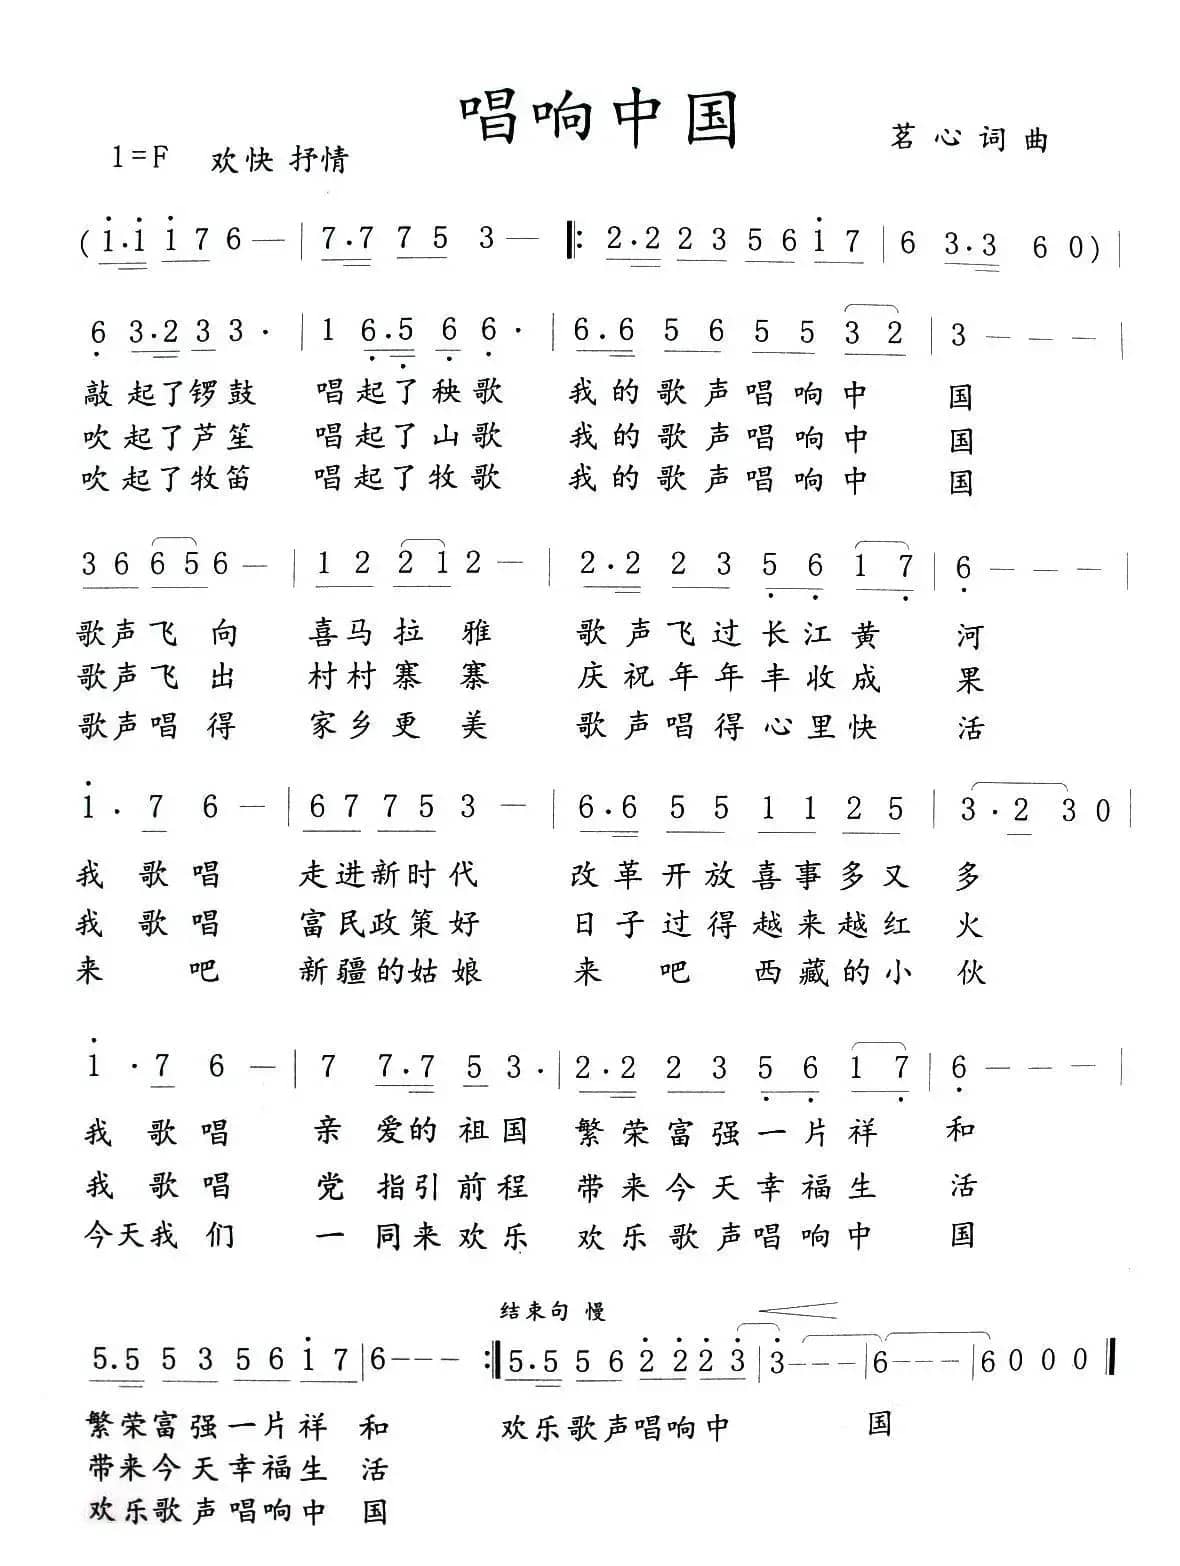 唱响中国
1=F 欢快 抒情 茗心词曲
(1·1 1 7 6 — | 7·7 7 5 3 — ‖: 2·2 2 3 5 6 1 7 | 6 3·3 6 0) |
6 3·2 3 3· | 1 6·5 6 6· | 6·6 5 6 5 5 3 2 | 3 — — — |
敲起了锣鼓 唱起了秧歌 我的歌声唱响中国
吹起了芦笙 唱起了山歌 我的歌声唱响中国
吹起了牧笛 唱起了牧歌 我的歌声唱响中国
3 6 6 5 6 — | 1 2 2 1 2 — | 2·2 2 3 5 6 1 7 | 6 — — — |
歌声飞向 喜马拉雅 歌声飞过长江黄河
歌声飞出 村村寨寨 庆祝年年丰收成果
歌声唱得 家乡更美 歌声唱得心里快活
1· 7 6 — | 6 7 7 5 3 — | 6·6 5 5 1 1 2 5 | 3·2 3 0 |
我歌唱 走进新时代 改革开放喜事多又多
我歌唱 富民政策好 日子过得越来越红火
来吧 新疆的姑娘 来吧西藏的小伙
1· 7 6 — | 7 7·7 5 3· | 2·2 2 3 5 6 1 7 | 6 — — — |
我歌唱 亲爱的祖国 繁荣富强一片祥和
我歌唱 党指引前程 带来今天幸福生活
今天我们 一同来欢乐 欢乐歌声唱响中国
结束句 慢
5·5 5 3 5 6 1 7 | 6 — — — :‖ 5·5 5 6 2 2 2 3 | 3 — — — | 6 — — — | 6 0 0 0 ‖
繁荣富强一片祥和 欢乐歌声唱响中国
带来今天幸福生活
欢乐歌声唱响中国